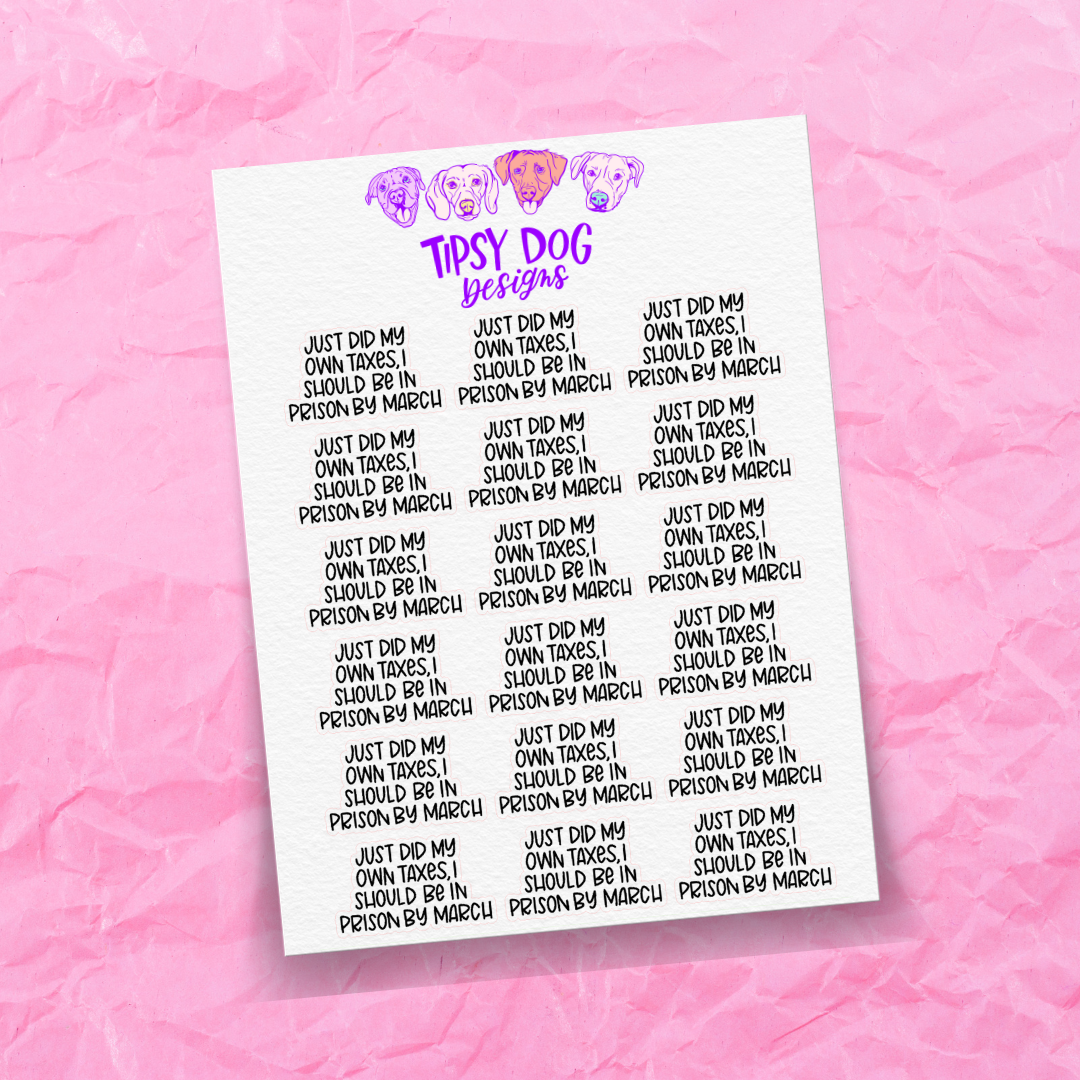 TIPSY DOG
Designs
JUST DID MY
OWN TAXES, I
SHOULD BE IN
PRISON BY MARCH
JUST DID MY
OWN TAXES, I
SHOULD BE IN
PRISON BY MARCH
JUST DID MY
OWN TAXES, I
SHOULD BE IN
PRISON BY MARCH
JUST DID MY
OWN TAXES, I
SHOULD BE IN
PRISON BY MARCH
JUST DID MY
OWN TAXES, I
SHOULD BE IN
PRISON BY MARCH
JUST DID MY
OWN TAXES, I
SHOULD BE IN
PRISON BY MARCH
JUST DID MY
OWN TAXES, I
SHOULD BE IN
PRISON BY MARCH
JUST DID MY
OWN TAXES, I
SHOULD BE IN
PRISON BY MARCH
JUST DID MY
OWN TAXES, I
SHOULD BE IN
PRISON BY MARCH
JUST DID MY
OWN TAXES, I
SHOULD BE IN
PRISON BY MARCH
JUST DID MY
OWN TAXES, I
SHOULD BE IN
PRISON BY MARCH
JUST DID MY
OWN TAXES, I
SHOULD BE IN
PRISON BY MARCH
JUST DID MY
OWN TAXES, I
SHOULD BE IN
PRISON BY MARCH
JUST DID MY
OWN TAXES, I
SHOULD BE IN
PRISON BY MARCH
JUST DID MY
OWN TAXES, I
SHOULD BE IN
PRISON BY MARCH
JUST DID MY
OWN TAXES, I
SHOULD BE IN
PRISON BY MARCH
JUST DID MY
OWN TAXES, I
SHOULD BE IN
PRISON BY MARCH
JUST DID MY
OWN TAXES, I
SHOULD BE IN
PRISON BY MARCH